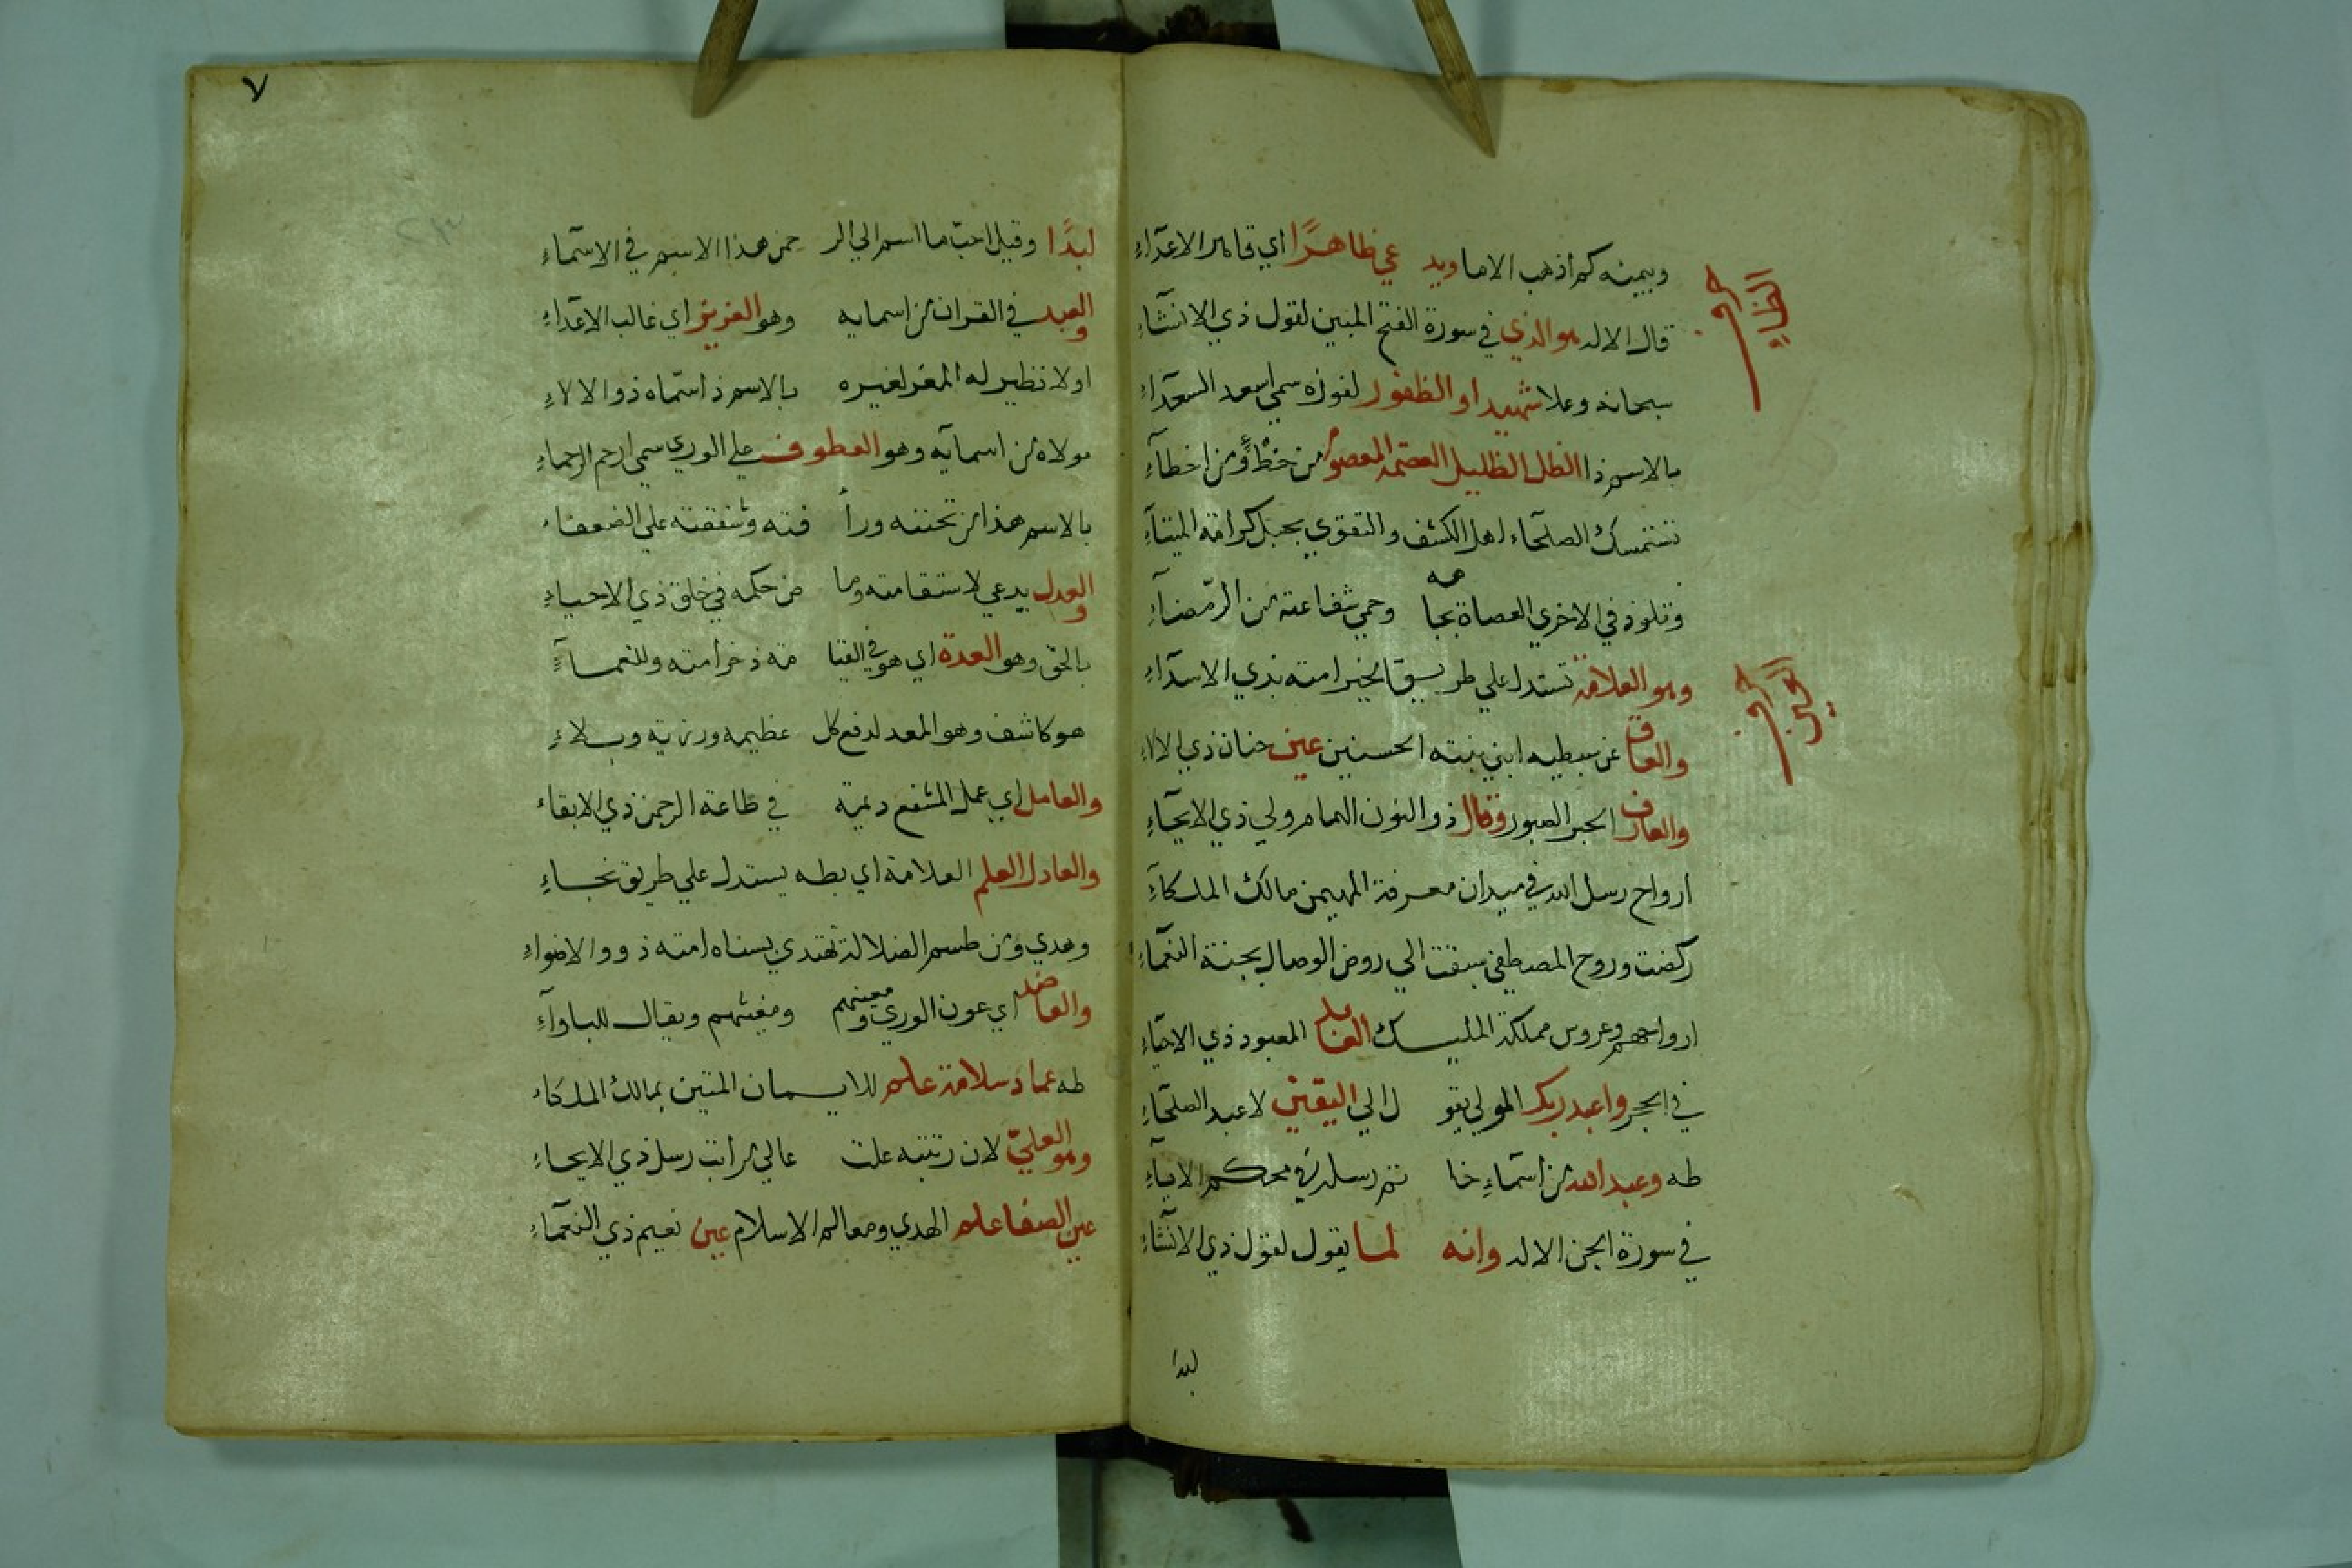 حرف الظاء
وبيمينه كم اذهب الاما ويد عي ظاهرًا اي قاهر الاعدآءِ
قال الاله هو الذي في سورة الفتح المبين لقول ذي الانشآءِ
سبحانه وعلا شهيدا و الظفور لفوزه سمي اسعد السعدآءِ
بالاسم ذا الظل الظليل العصمه المعصوم من خطأٍ ومن اخطآءِ
تستمسك الصلحآء اهل الكشف والتقوي بحبل كرامة الميتآءِ
وتلوذ في الاخري العصاة بجا هه وحمي شفاعته من الرمضآءِ
حرف العين
وهو العلامة تستدل علي طريق الخير امته بذي الاسدآءِ
والعاق عن سبطيه ابني بنته الحسنين عين حنان ذي الالاءِ
والعارف الحبر الصبور وقال ذو النون الهمام ولي ذي الايحآءِ
ارواح رسل الله في ميدان معرفة المهيمن مالك الملكآءِ
ركضت وروح المصطفي سبقت الي روض الوصال بجنة النعمآءِ
ارواحهم وعروس مملكة المليك العابد المعبود ذي الاحيآءِ
في الحجر واعبد ربك المولي يقو ل الي اليقين لاعبد الصلحآءِ
طه وعبد الله من اسمآءِ خا تم رسله في محكم الانبآءِ
في سورة الجن الاله وانه لما يقول لقول ذي الانشآءِ
لبدا
٧
٢١٣
لبدًا وقيل احب ما اسم الي الر حمن هذا الاسم في الاسمآءِ
والعبد في القران من اسمايه وهو العزيز اي غالب الاعدآءِ
او لا نظير له المعز لغيره بالاسم ذا سماه ذو الالاءِ
مولاه من اسمآيه وهو العطوف علي الوري سمي ارحم الرحماءِ
بالاسم هذا من تحننه ورأ فته وشفقته علي الضعفاء
والعدل يدعي لاستقامته وما ض حكمه في خلق ذي الاحياءِ
بالحق وهو العدة اي هو في القيا مة ذخر امته وللنعمآءِ
هو كاشف وهو المعد لدفع كل عظيمه ورزية وبلاءِ
والعامل اي عمل المشفع ديمة في طاعة الرحمن ذي الابقاء
والعادل العلم العلامة اي بطه يستدل علي طريق نجاءِ
وهدي ومن طسم الضلالة تهتدي بسناه امته ذوو الاضواءِ
والعاضد اي عون الوري ومعينهم ومغيثهم ويقال للباوآءِ
طه عماد سلامة علم للايمان المتين بمالك الملكاء
وهو العليّ لان رتبته علت عالي مراتب رسل ذي الايحاءِ
عين الصفا علم الهدي ومعالم الاسلام عين نعيم ذي النعمآءِ